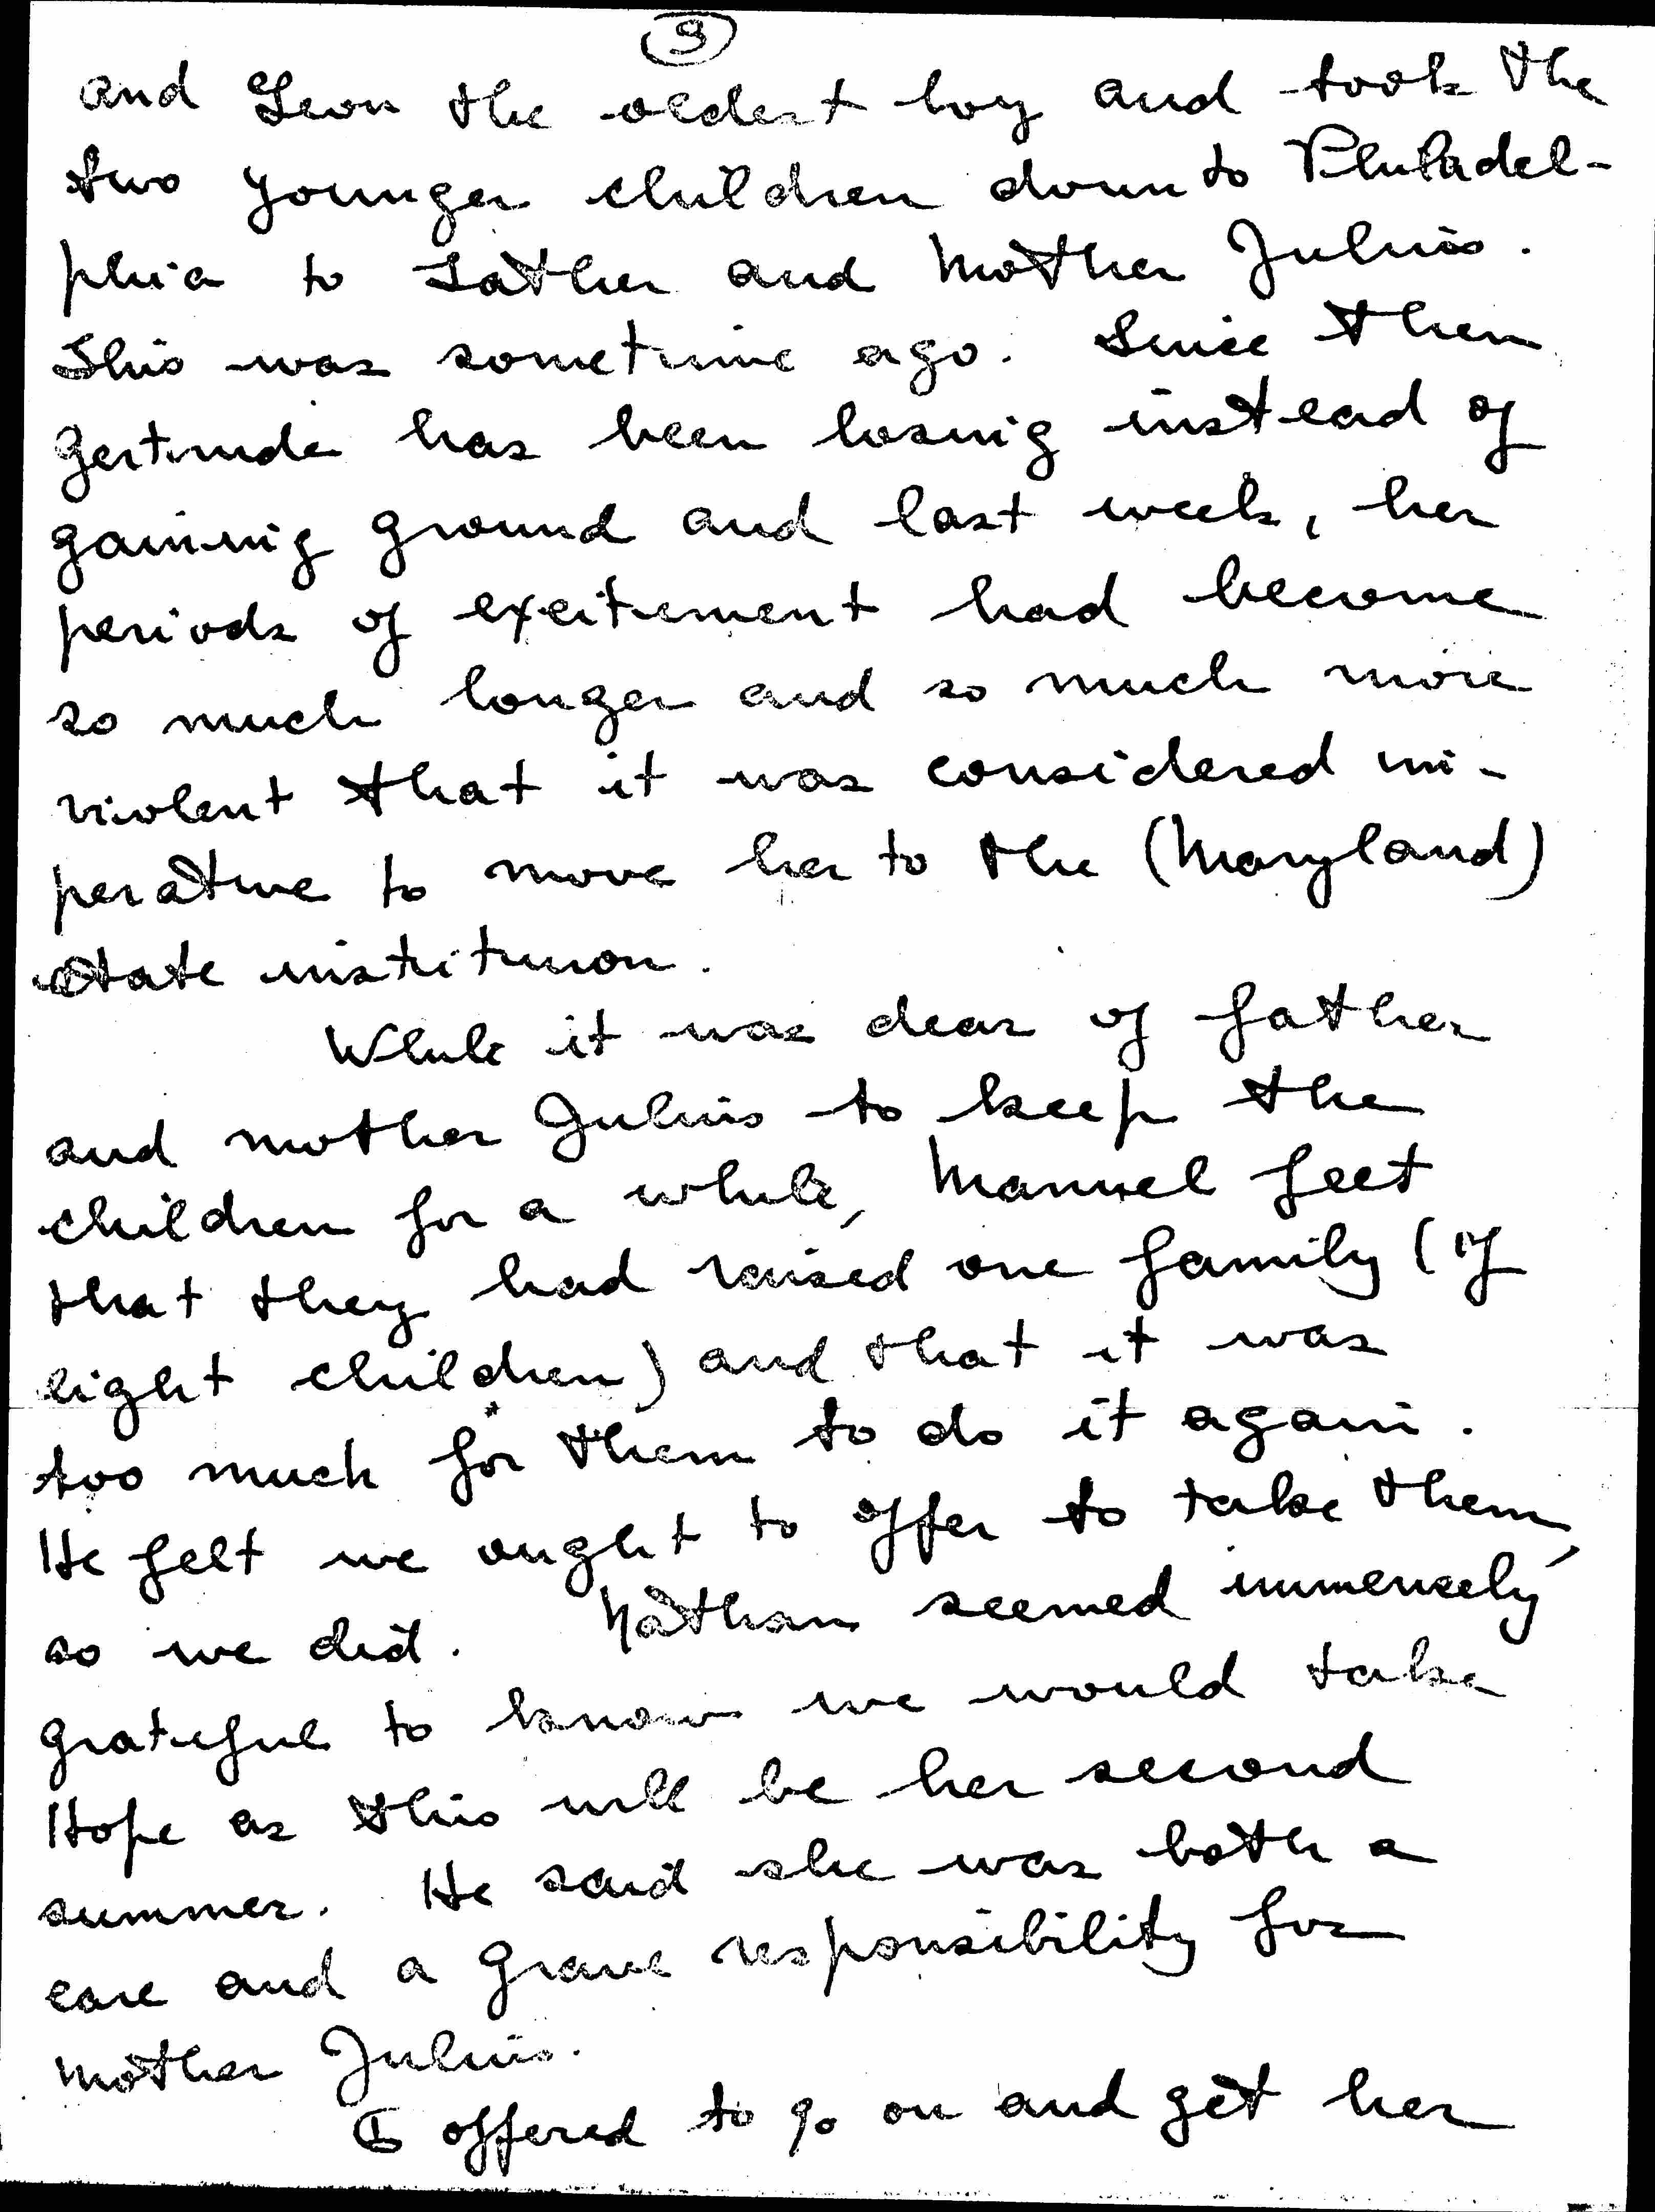 3
and Leon the oldest boy and took the
two younger children down to Philadel-
phia to Father and Mother Julius.
This was sometime ago. Since then
Gertrude has been losing instead of
gaining ground and last week, her
periods of excitement had become
so much longer and so much more
violent that it was considered im-
perative to move her to the (Maryland)
State institution.
While it was dear of father
and mother Julius to keep the
children for a while, Manuel feet
that they had raised one family (of
eight children) and that it was
too much for them to do it again.
He felt we ought to offer to take them,
so we did. Nathan seemed immensely
grateful to know we would take
Hope as this will be her second
summer. He said she was both a
care and a grave responsibility for
mother Julius.
I offered to go on and get her